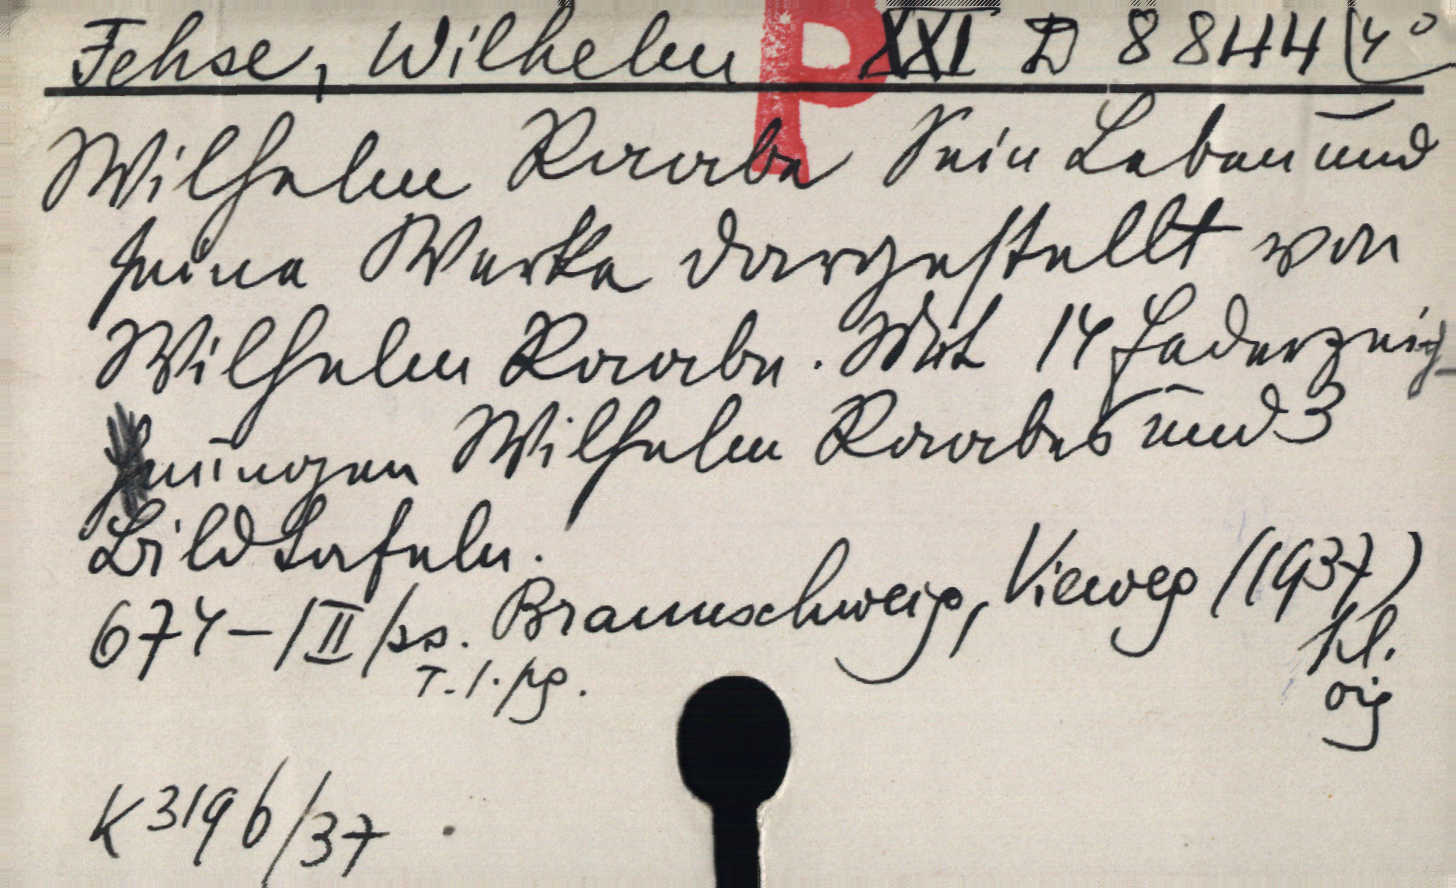 Fehse, Wilhelm P XXI D 8844 (4°
Wilhelm Raabe Sein Leben und
seine Werke dargestellt von
Wilhelm Raabe. Mit 14 Federzeich-
nungen Wilhelm Raabes und 3
Bildtafeln.
674-/II/ss. Braunschweig, Vieweg (1937)
T.-1.pg.
kl.
oig
K 3196/37